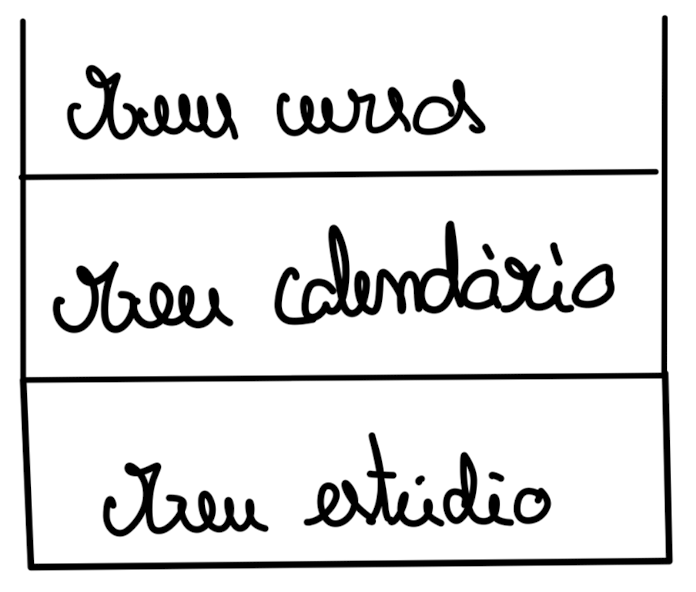 Meus cursos
Meu calendário
Meu estúdio